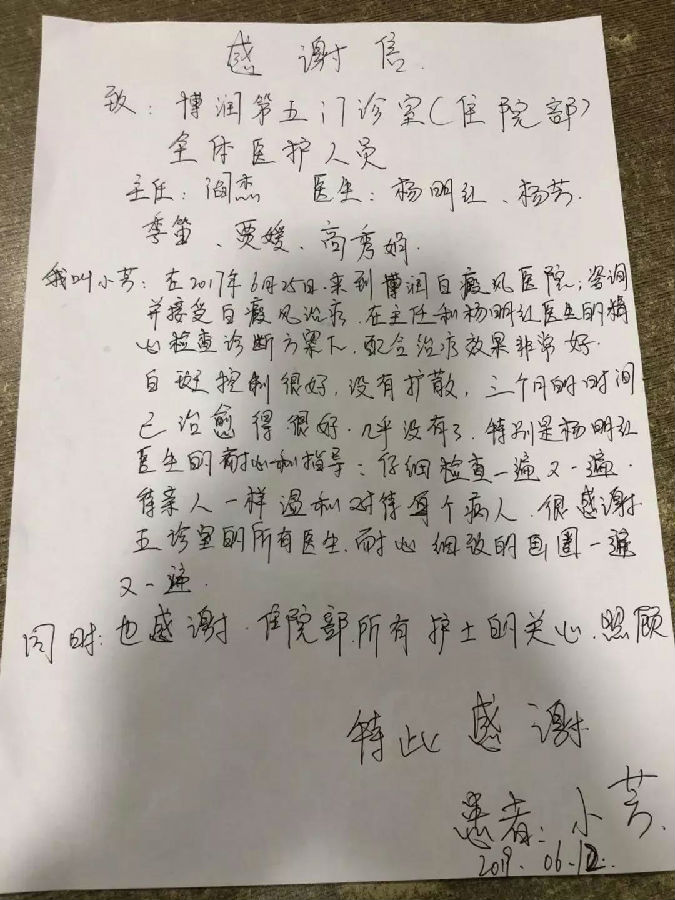 感谢信.
致：博润第五门诊室（住院部）
全体医护人员
主任：阎杰 医生：杨明红、杨芳.
季笛、贾媛、高秀娟.
我叫小芳：在2017年6月25日.来到博润白癜风医院；咨询
并接受白癜风治疗.在主任和杨明红医生的精
心检查诊断方案下.配合治疗效果非常好.
白斑控制很好，没有扩散，三个月的时间
已治愈得很好.几乎没有了.特别是杨明红
医生的耐心和指导：仔细检查一遍又一遍.
待亲人一样温和对待每个病人.很感谢
五诊室的所有医生.耐心细致的画圈一遍
又一遍.
同时：也感谢.住院部.所有护士的关心.照顾
特此感谢
患者：小芳.
2019.06.12.